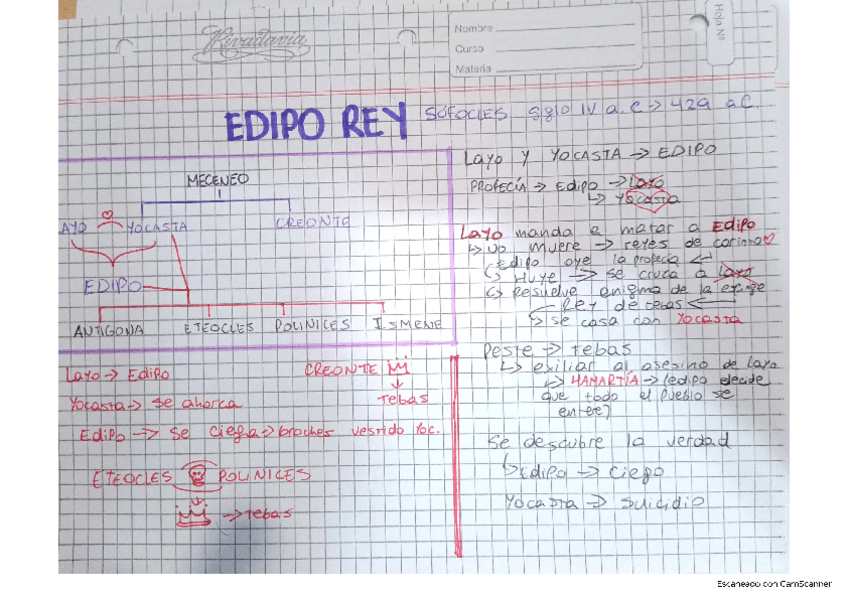 Rivadavia
Nombre
Curso
Materia
Hoja Nº
EDIPO REY SÓFOCLES Siglo IV a.C → 429 a.C.
MECENEO
LAYO YOCASTA CREONTE
EDIPO
ANTIGONA ETEOCLES POLINICES ISMENE
Layo → Edipo
Yocasta → se ahorca
Edipo → se ciega → broches vestido Yoc.
CREONTE
↓
Tebas
ETEOCLES POLINICES
→ tebas
Layo y YOCASTA → EDIPO
PROFECÍA → Edipo → Layo
↳ YOCASTA
Layo manda a matar a Edipo
↳ no muere → reyes de corinto
Edipo oye la profecia ↵
↳ Huye → se cruza a Layo
↳ Resuelve enigma de la esfinge
Rey de tebas ←
↳ se casa con Yocasta
Peste → tebas
↳ exiliar al asesino de Layo
↳ HAMARTÍA → (edipo decide
que todo el pueblo se
entere)
Se descubre la verdad
↳ Edipo → ciego
Yocasta → suicidio
Escaneado con CamScanner